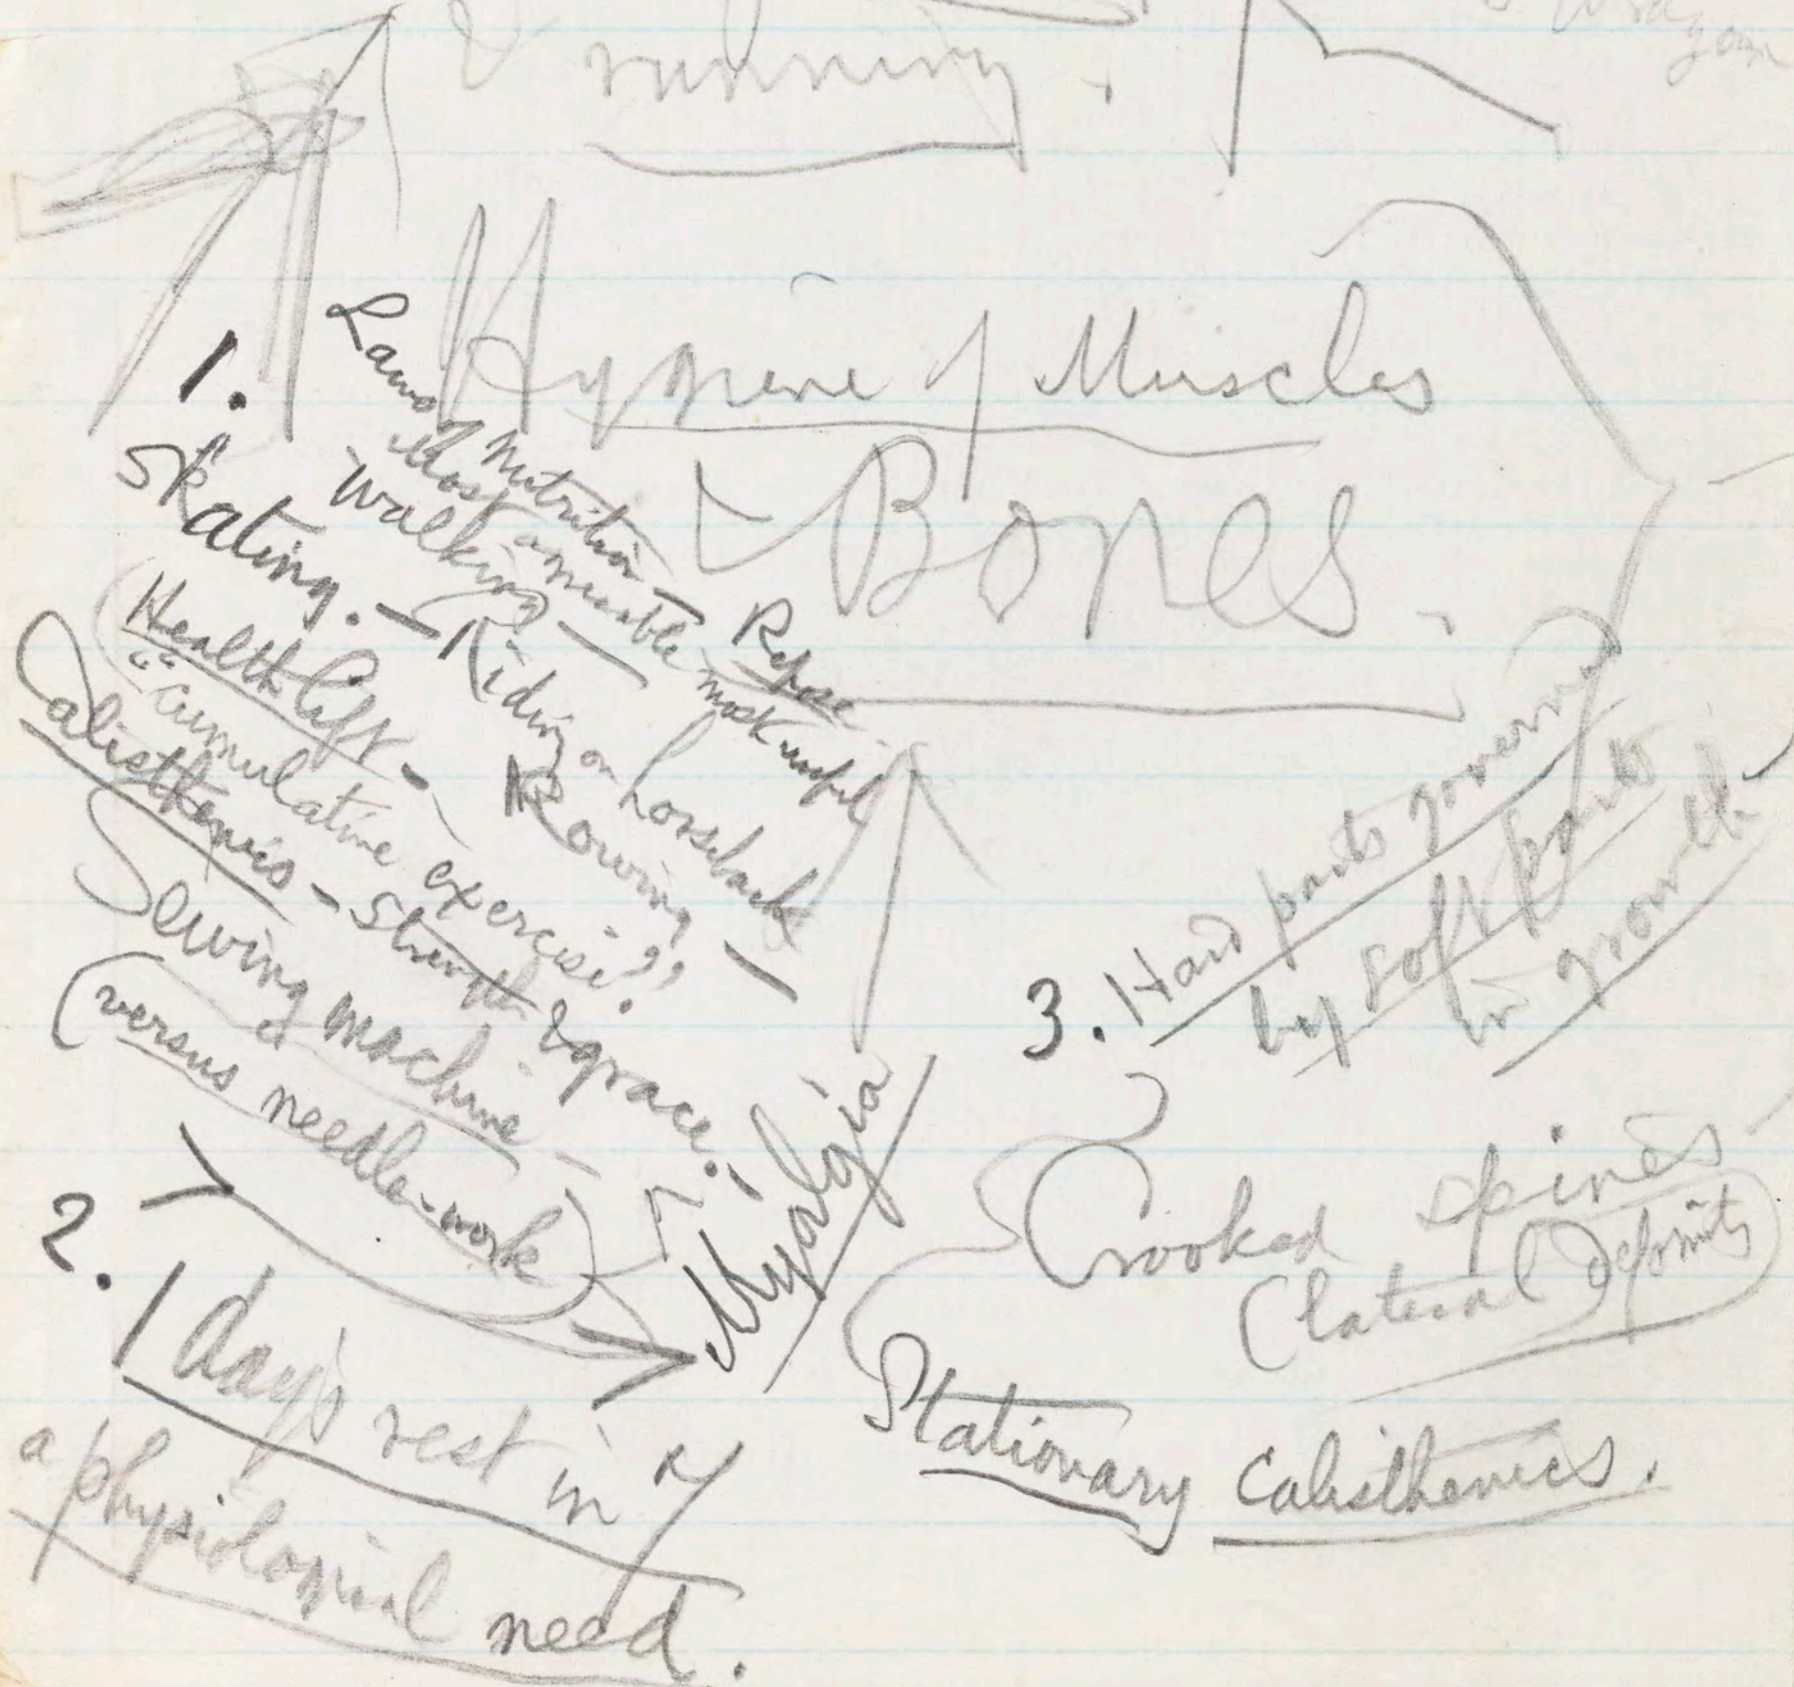 & running.
Hygiene of Muscles
& Bones.
1.
Laws of Nutrition — Repose
Most amiable most useful
Walking —
Skating. — Riding on horseback
Rowing —
Health lift —
"cumulative exercise?"
Calisthenis — Strength & grace.
Sewing machine —
(versus needle-work)
Myalgia
2. 1 day's rest in 7
a physiological need.
3. Hard parts governd
by soft parts
in growth
Crooked spines
(lateral deformity)
Stationary Calisthenics.